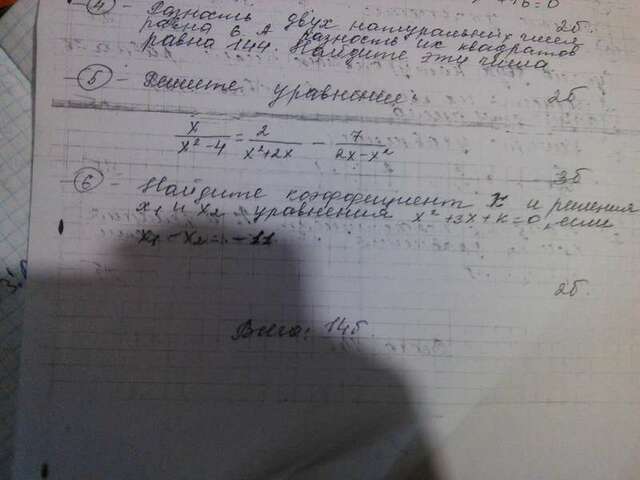 +6=0
4 - Разность двух натуральных чисел 2б.
равна 6. А разность их квадратов
равна 144. Найдите эти числа
5 - Решите уравнение: 2б
x/(x²-4) = 2/(x²+2x) - 7/(2x-x²)
3б
6 - Найдите коэффициент K и решения
x₁ и x₂ уравнения x²+3x+K=0, если
x₁-x₂=-11
2б.
Всего: 14б.